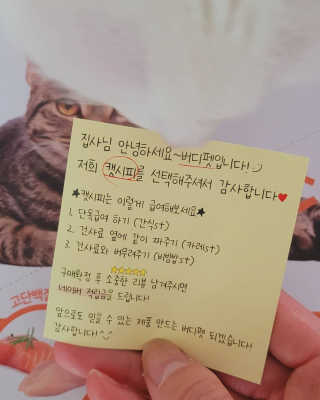 집사님 안녕하세요~버디펫입니다! :)
저희 캣시피를 선택해주셔서 감사합니다♥
★캣시피는 이렇게 급여해보세요★
1. 단독급여 하기 (간식st)
2. 건사료 옆에 같이 짜주기 (카레st)
3. 건사료와 버무려주기 (비빔밥st)
☆☆☆☆☆
구매확정 후 소중한 리뷰 남겨주시면
네이버 적립금을 드립니다!
앞으로도 믿을 수 있는 제품 만드는 버디펫 되겠습니다!
감사합니다! :)
고단백